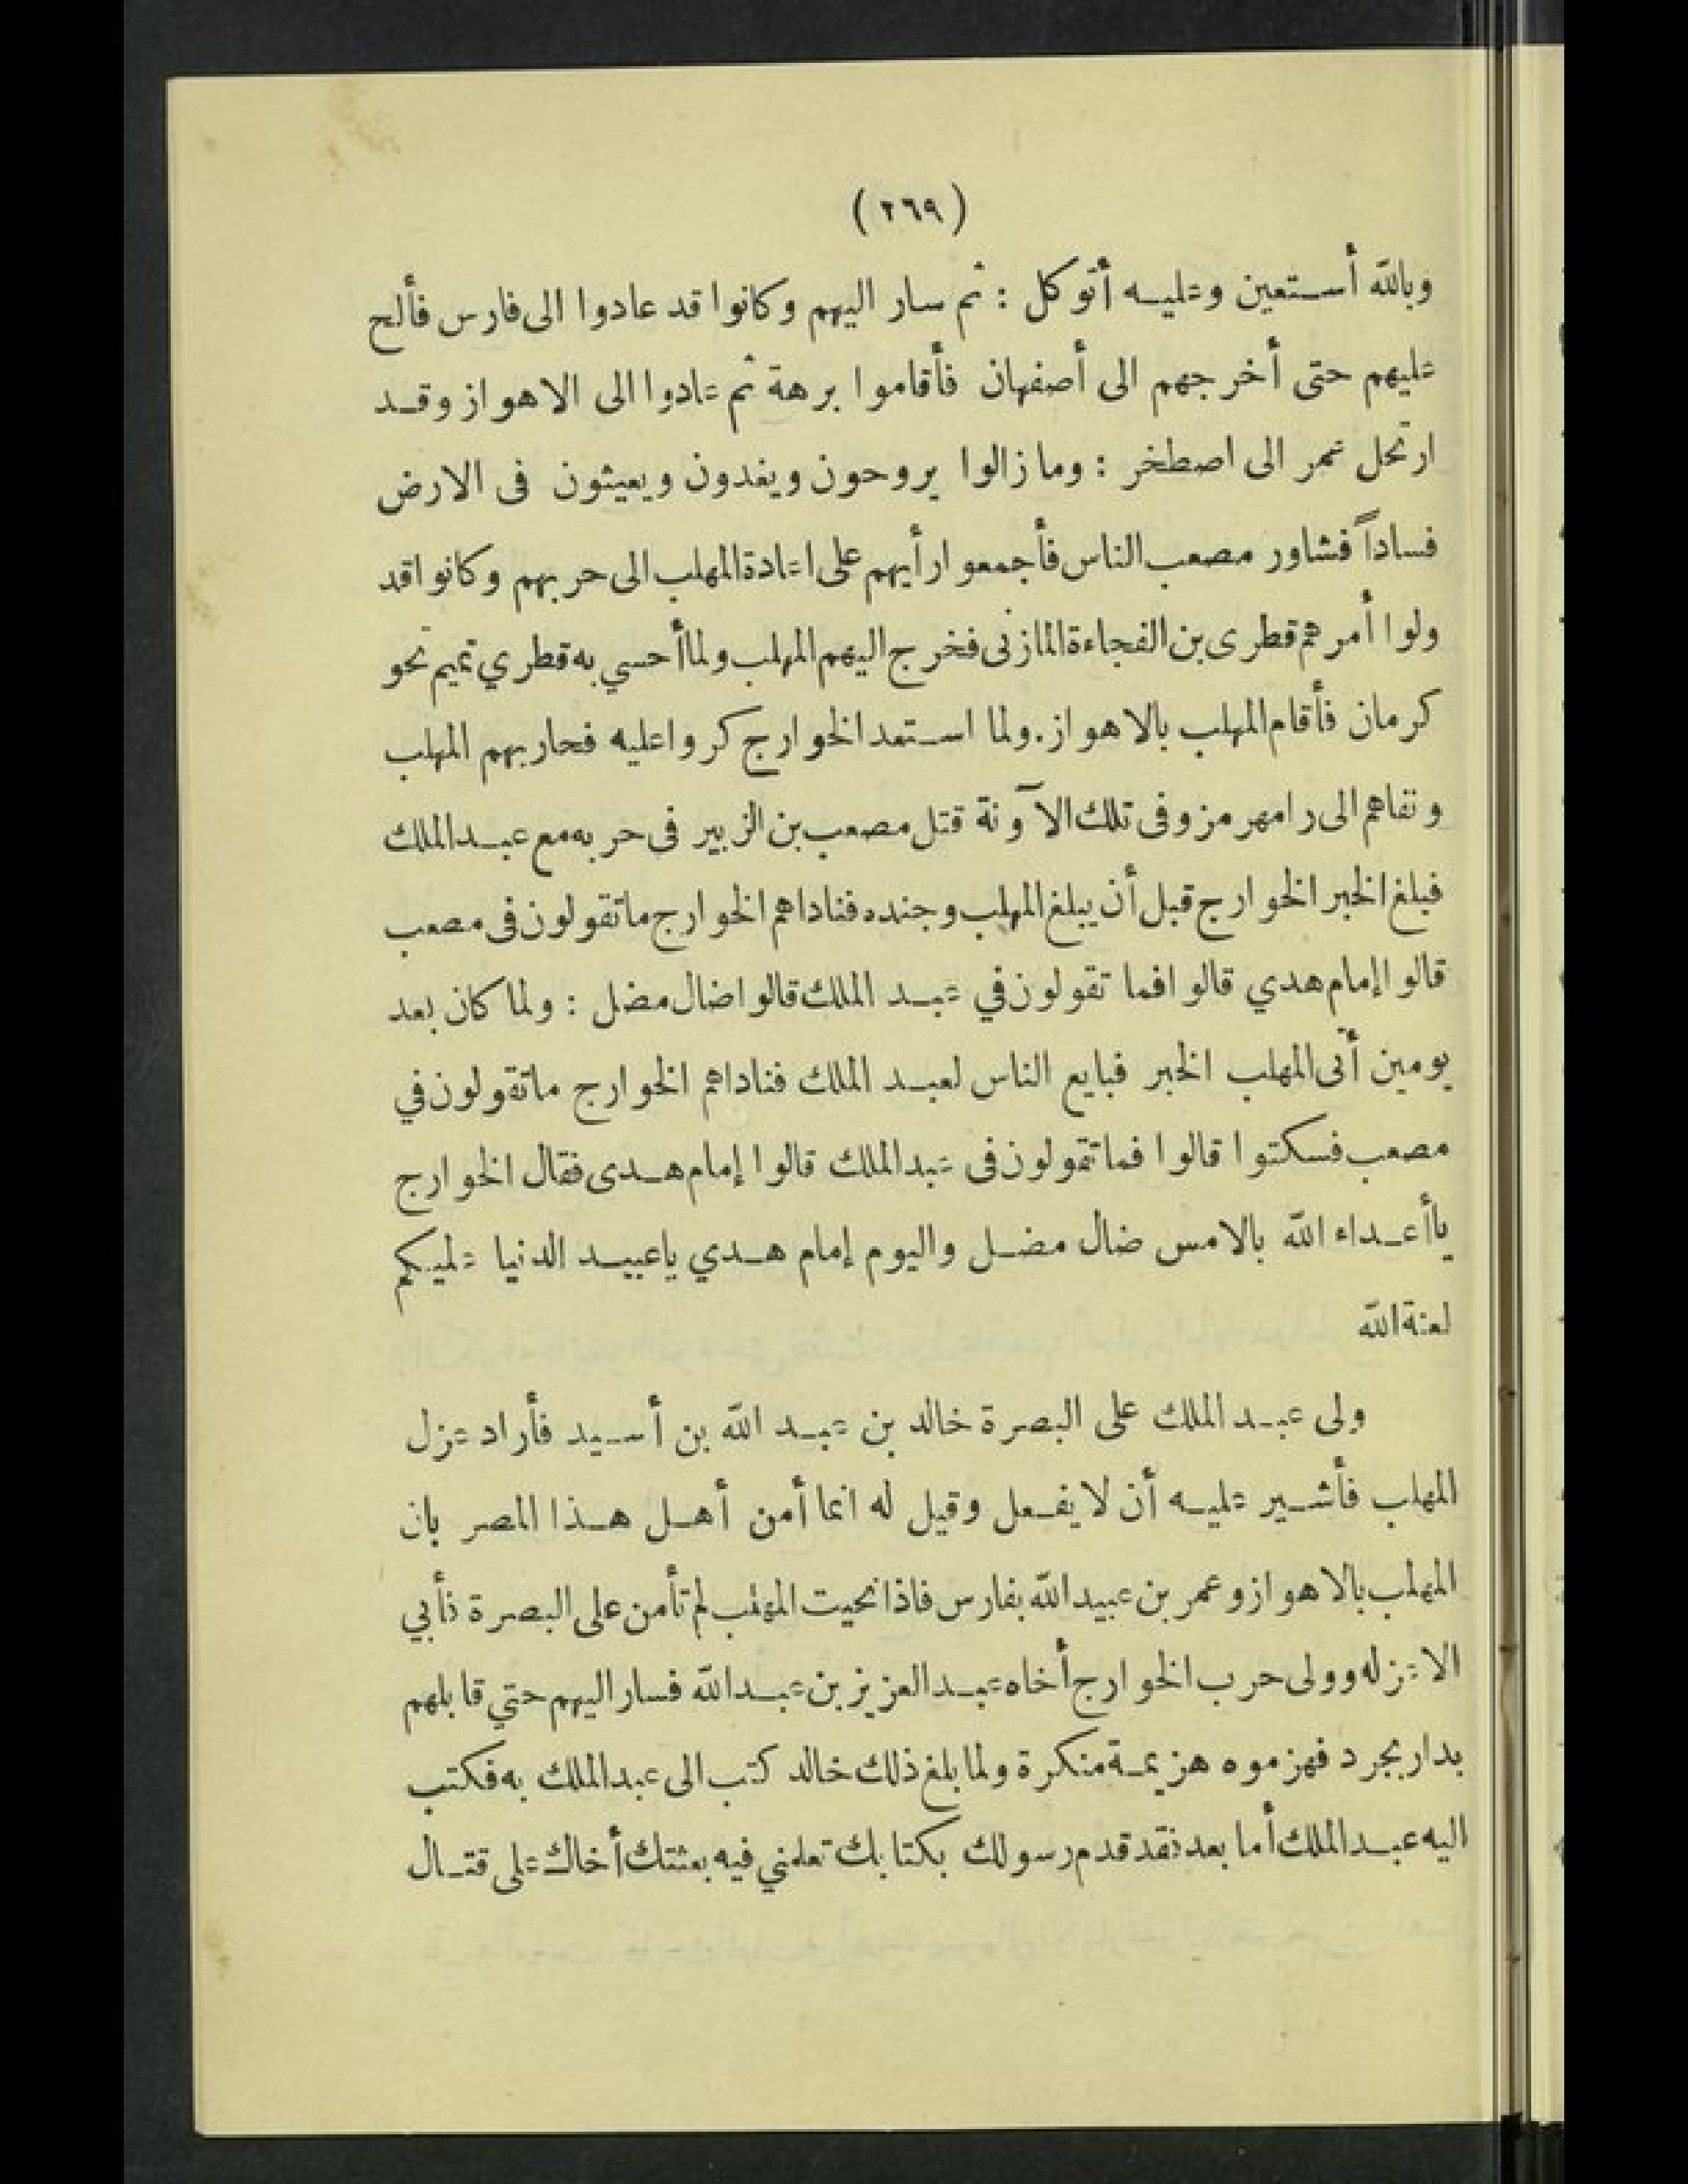 (٢٦٩)
وبالله أستعين وعليه أتوكل : ثم سار اليهم وكانوا قد عادوا الى فارس فألح
عليهم حتى أخرجهم الى أصفهان فأقاموا برهة ثم عادوا الى الاهواز وقد
ارتحل عمر الى اصطخر : وما زالوا يروحون ويغدون ويعيثون فى الارض
فساداً فشاور مصعب الناس فأجمعوا رأيهم على اعادة المهلب الى حربهم وكانوا قد
ولوا أمرهم قطرى بن الفجاءة المازنى فخرج اليهم المهلب ولما أحسي به قطري تميم نحو
كرمان فأقام المهلب بالاهواز. ولما استعد الخوارج كروا عليه فحاربهم المهلب
ونفاهم الى رامهرمز وفى تلك الآونة قتل مصعب بن الزبير فى حربه مع عبد الملك
فبلغ الخبر الخوارج قبل أن يبلغ المهلب وجنده فناداهم الخوارج ما تقولون فى مصعب
قالوا إمام هدي قالوا فما تقولون في عبد الملك قالوا ضال مضل : ولما كان بعد
يومين أتى المهلب الخبر فبايع الناس لعبد الملك فناداهم الخوارج ما تقولون في
مصعب فسكتوا قالوا فما تقولون فى عبد الملك قالوا إمام هدى فقال الخوارج
يا أعداء الله بالامس ضال مضل واليوم إمام هدي يا عبيد الدنيا عليكم
لعنة الله
ولى عبد الملك على البصرة خالد بن عبد الله بن أسيد فأراد عزل
المهلب فأشير عليه أن لا يفعل وقيل له انما أمن أهل هذا المصر بان
المهلب بالاهواز وعمر بن عبيد الله بفارس فاذا نحيت المهلب لم تأمن على البصرة فأبي
الا عزله وولى حرب الخوارج أخاه عبد العزيز بن عبد الله فسار اليهم حتي قابلهم
بداربجرد فهزموه هزيمة منكرة ولما بلغ ذلك خالد كتب الى عبد الملك به فكتب
اليه عبد الملك أما بعد فقد قدم رسولك بكتابك تعلمني فيه بعثتك أخاك على قتال